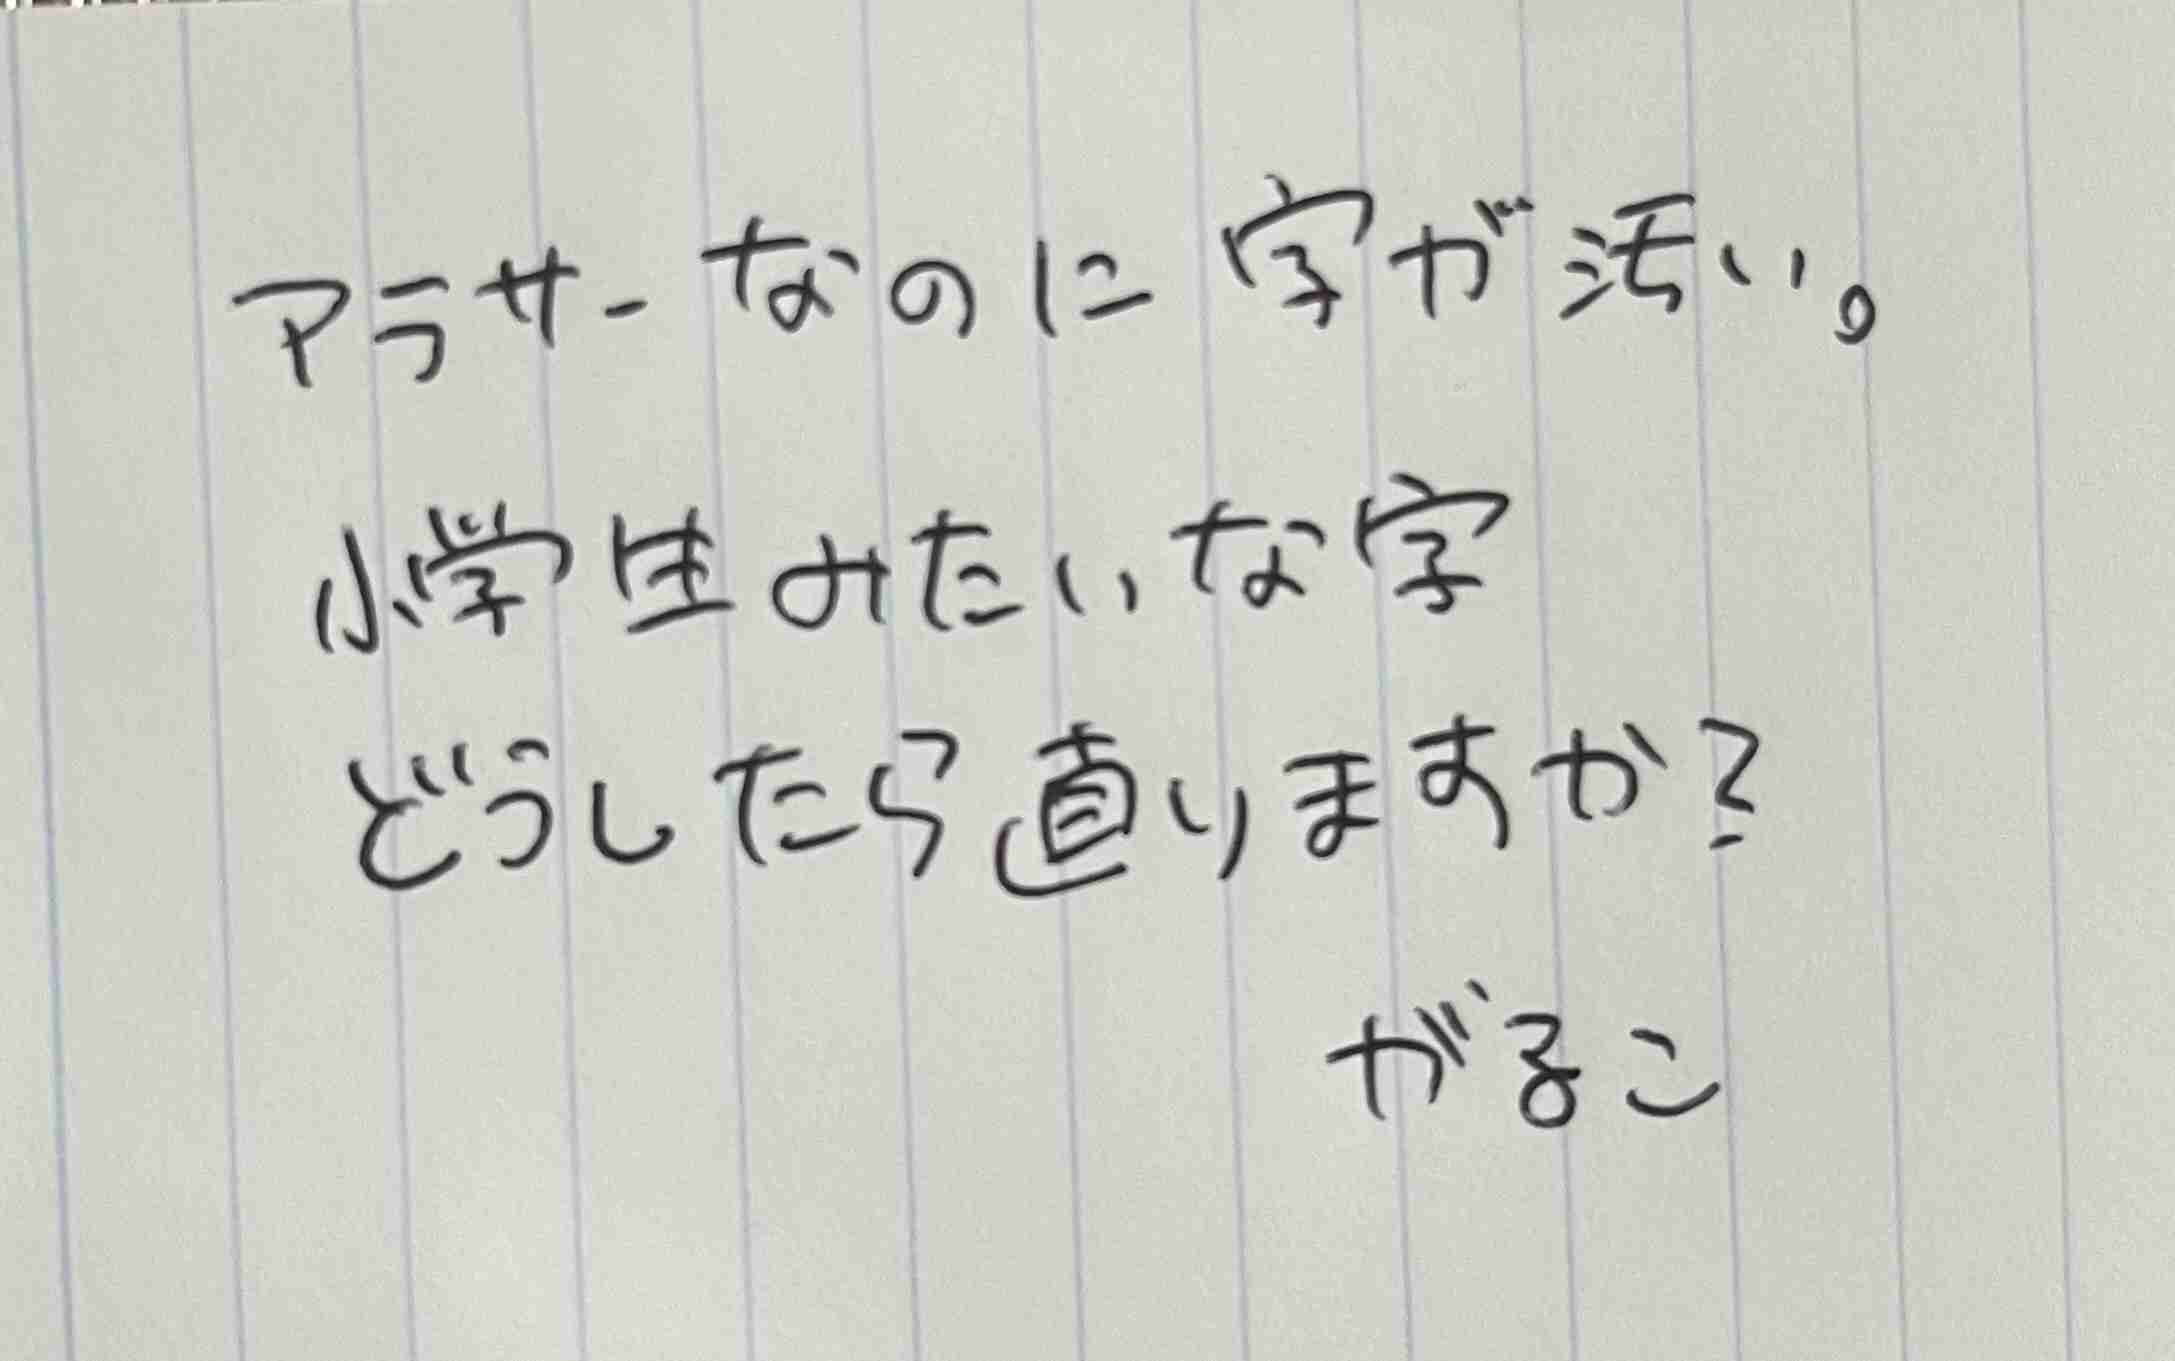 アラサーなのに字が汚い。
小学生みたいな字
どうしたら直りますか？
がるこ